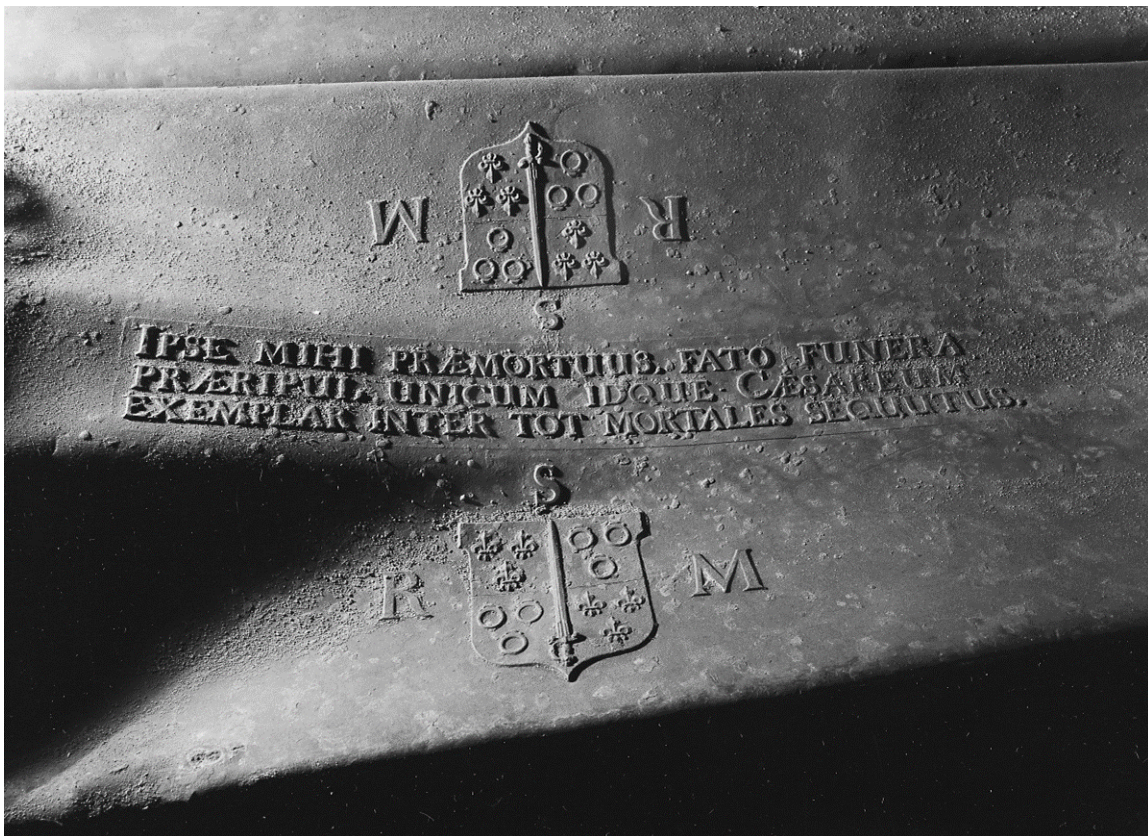 M R
S
IPSE MIHI PRÆMORTUUS. FATO FUNERA
PRÆRIPUI. UNICUM IDQUE CÆSAREUM
EXEMPLAR INTER TOT MORTALES SEQUUTUS.
S
R M